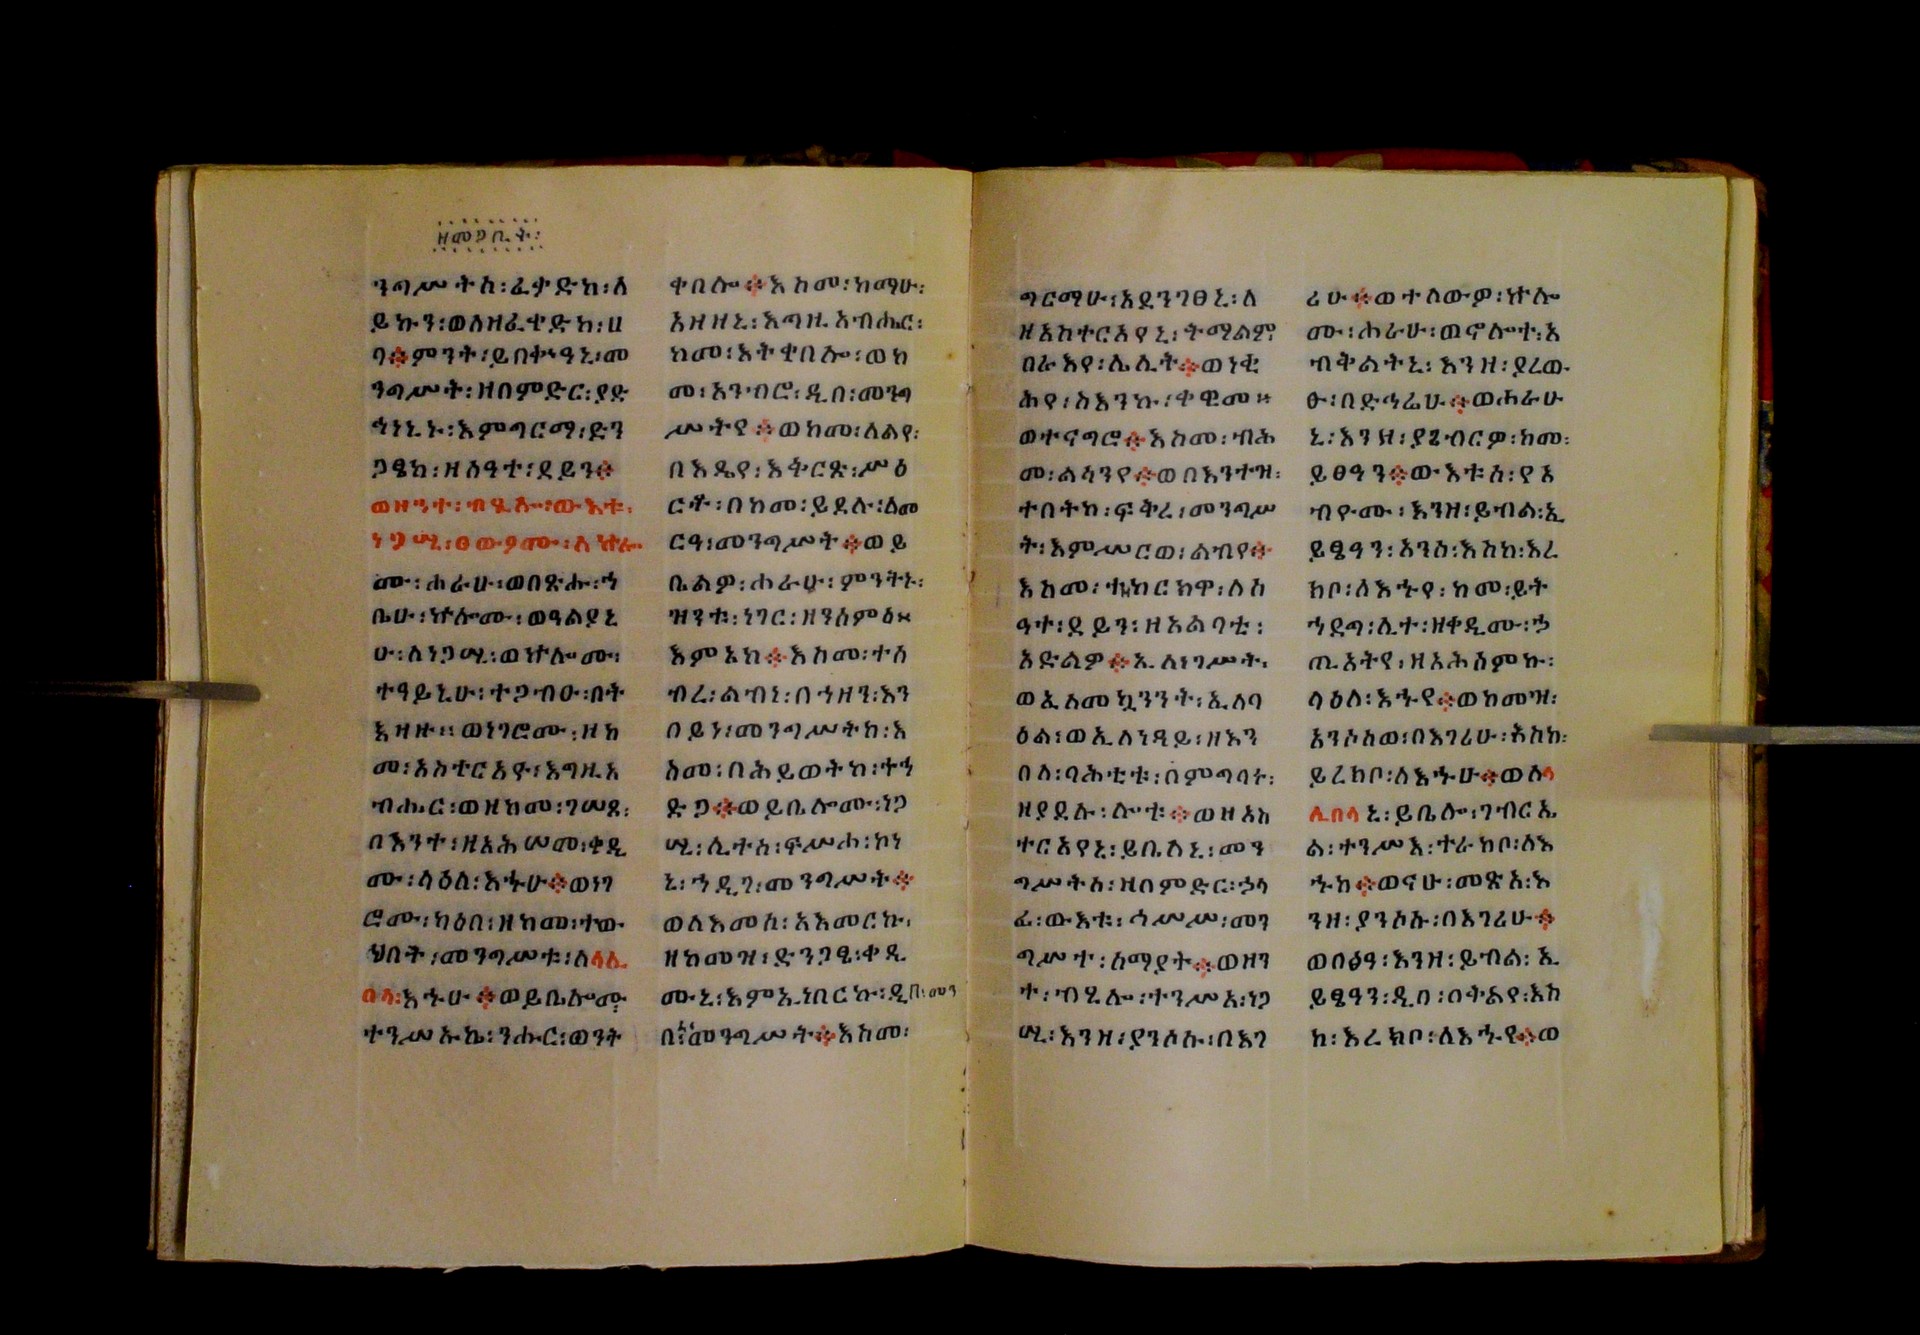 ዘመጋቢት፡
ንግሥትሰ፡ፈቃድከ፡ለ
ይኩን፡ወለዘፈቀድከ፡ሀ
ባ፨ምንት፡ይበቍዓኒ፡መ
ንግሥት፡ዘበምድር፡ያድ
ኅነኒኑ፡እምግርማ፡ድን
ጋፄከ፡ዘሰዓተ፡ደይን፨
ወዘንተ፡ብሂሎ፡ውእቱ፡
ነጋሢ፡ፀውዖሙ፡ለኵሎ
ሙ፡ሐራሁ፡ወበጽሑ፡ኀ
ቤሁ፡ኵሎሙ፡ወዓልያኒ
ሁ፡ለነጋሢ፡ወኵሎሙ፡
ተዓይኒሁ፡ተጋብዑ፡በት
እዛዙ፡፡ወነገሮሙ፡ዘከ
መ፡አስተርአዮ፡እግዚአ
ብሔር፡ወዘከመ፡ገሠጸ፡
በእንተ፡ዘአሕሠመ፡ቀዲ
ሙ፡ላዕለ፡እኁሁ፨ወነገ
ሮሙ፡ካዕበ፡ዘከመ፡ተው
ህበት፡መንግሥቱ፡ለላሊ
በላ፡እኁሁ፨ወይቤሎሙ
ተንሥኡኬ፡ንሑር፡ወንት
ቀበሎ፨እስመ፡ከማሁ፡
አዘዘኒ፡እግዚአብሔር፡
ከመ፡እትቄበሎ፡ወከ
መ፡አንብሮ፡ዲበ፡መንግ
ሥትየ፨ወከመ፡ለልየ፡
በእዴየ፡እቅርጽ፡ሥዕ
ርቶ፡በከመ፡ይደሉ፡ለመ
ርዓ፡መንግሥት፨ወይ
ቤልዎ፡ሐራሁ፡ምንትኑ፡
ዝንቱ፡ነገር፡ዘንሰምዕ፡፡
እምኔከ፨እስመ፡ተሰ
ብረ፡ልብነ፡በኀዘን፡እን
በይነ፡መንግሥትከ፡እ
ስመ፡በሕይወትከ፡ተኀ
ድጋ፨ወይቤሎሙ፡ነጋ
ሢ፡ሊተሰ፡ፍሥሐ፡ኮነ
ኒ፡ኀዲገ፡መንግሥት፨
ወለእመሰ፡አእመርኩ፡
ዘከመዝ፡ድንጋፄ፡ቀዲ
ሙኒ፡እምኢነበርኩ፡ዲበ፡መን
በ፡መንግሥት፨እስመ፡
ግርማሁ፡አደንገፀኒ፡ለ
ዘአስተርአየኒ፡ትማልም
በራእየ፡ሌሊት፨ወነቂ
ሕየ፡ሰእንኩ፡ቀዊመ፡፡
ወተናግሮ፨እስመ፡ብሕ
መ፡ልሳንየ፨ወበእንተዝ፡
ተበትከ፡ፍቅረ፡መንግሥ
ት፡እምሥርወ፡ልብየ፨
እስመ፡ተዘከርክዋ፡ለሰ
ዓተ፡ደይን፡ዘአልባቲ፡
አድልዎ፨ኢለነገሥት፡
ወኢለመኳንንት፡ኢለባ
ዕል፡ወኢለነዳይ፡ዘእን
በለ፡ባሕቲቱ፡በምግባሩ፡
ዘያደሉ፡ሎቱ፨ወዘአስ
ተርአየኒ፡ይቤለኒ፡መን
ግሥትሰ፡ዘበምድር፡ኃላ
ፊ፡ውእቱ፡ኅሥሥ፡መን
ግሥተ፡ሰማያት፨ወዘን
ተ፡ብሂሎ፡ተንሥአ፡ነጋ
ሢ፡እንዘ፡ያንሶሱ፡በእገ
ሪሁ፨ወተለውዎ፡ኵሎ
ሙ፡ሐራሁ፡ወኖሎተ፡አ
ብቅልትኒ፡እንዘ፡ያረው
ፁ፡በድኅሬሁ፨ወሐራሁ
ኒ፡እንዘ፡ያጌብርዎ፡ከመ፡
ይፀዓን፨ውእቱሰ፡የአ
ብዮሙ፡እንዘ፡ይብል፡ኢ
ይፄዓን፡አንሰ፡እስከ፡እረ
ክቦ፡ለእኁየ፡ከመ፡ይት
ኀደግ፡ሊተ፡ዘቀዲሙ፡ኃ
ጢአትየ፡ዘአሕሰምኩ፡
ላዕለ፡እኁየ፨ወከመዝ፡
አንሶሰወ፡በእገሪሁ፡እስከ፡
ይረክቦ፡ለእኁሁ፨ወለላ
ሊበላኒ፡ይቤሎ፡ገብርኤ
ል፡ተንሥእ፡ተራከቦ፡ለእ
ኁከ፨ወናሁ፡መጽአ፡እ
ንዘ፡ያንሶሱ፡በእገሪሁ፨
ወበፅዓ፡እንዘ፡ይብል፡ኢ
ይፄዓን፡ዲበ፡በቅልየ፡እስ
ከ፡እረክቦ፡ለእኁየ፨ወ